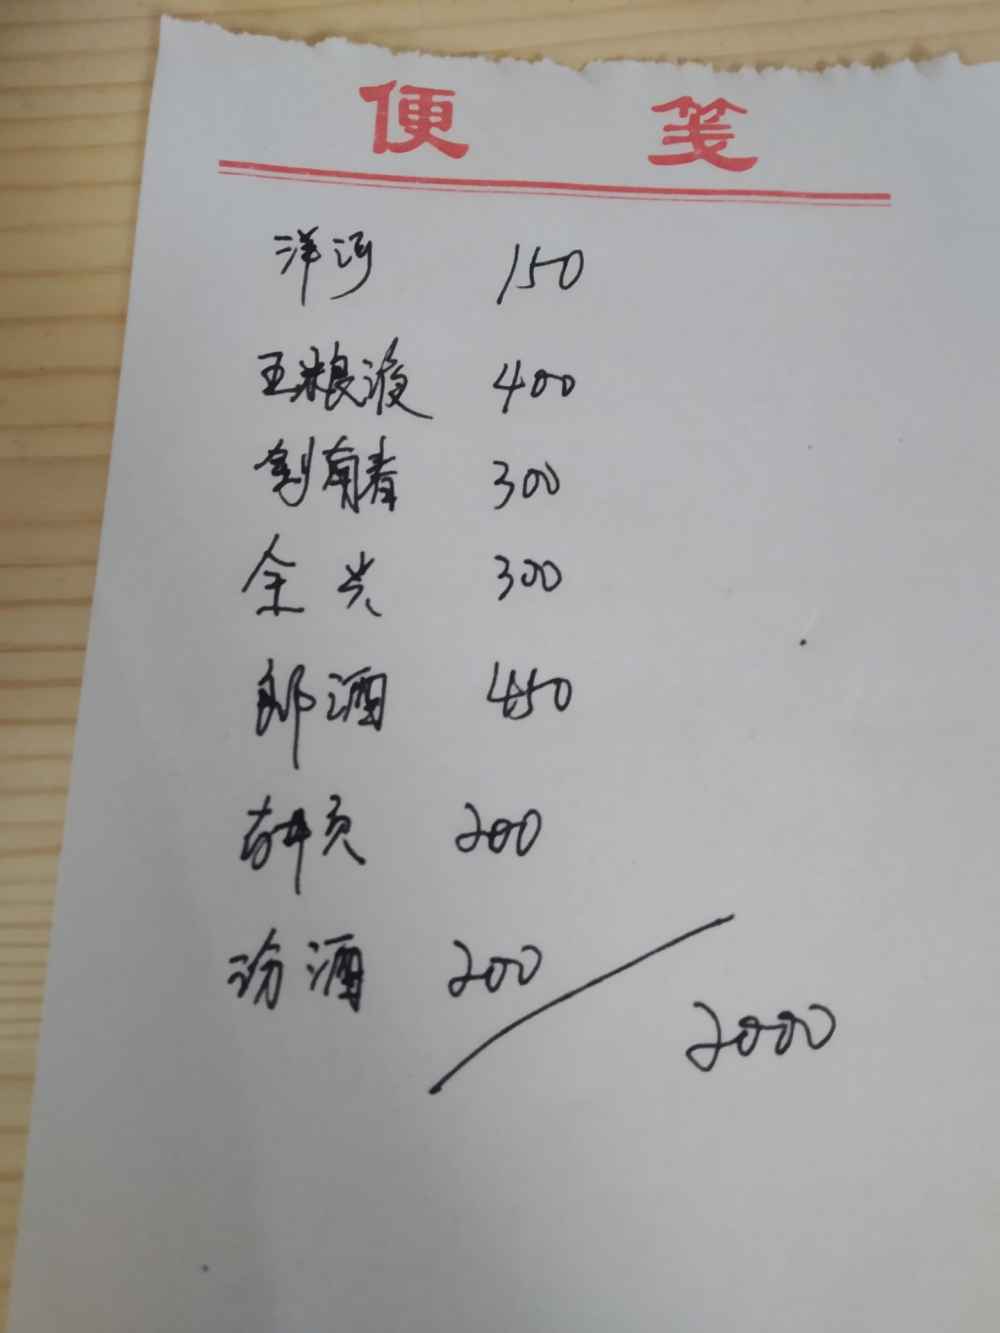 便笺
洋河 150
五粮液 400
剑南春 300
全兴 300
郎酒 450
200
汾酒 200
2000